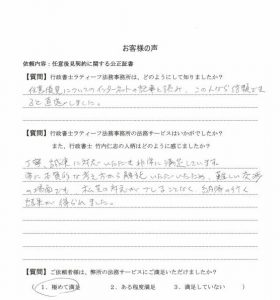 お客様の声
依頼内容：任意後見契約に関する公正証書
【質問】 行政書士ラティーフ法務事務所は、どのようにして知りましたか？
任意後見についてのインターネットの記事を読み、このんなら信頼すま
ると直感しました。
【質問】 行政書士ラティーフ法務事務所の法務サービスはいかがでしたか？
また、行政書士 竹内仁志の人柄はどのように感じましたか？
丁寧、誠実に対応いただき非常に満足しています。
常に本質的な考え方から解説いただいたため、難しい交渉
の場面でも 私共の考えがブレることなく、納得の行く
結果が得られました。
【質問】 ご依頼者様は、弊所の法務サービスにご満足いただけましたか？
1．極めて満足 2．ある程度満足 3．満足していない